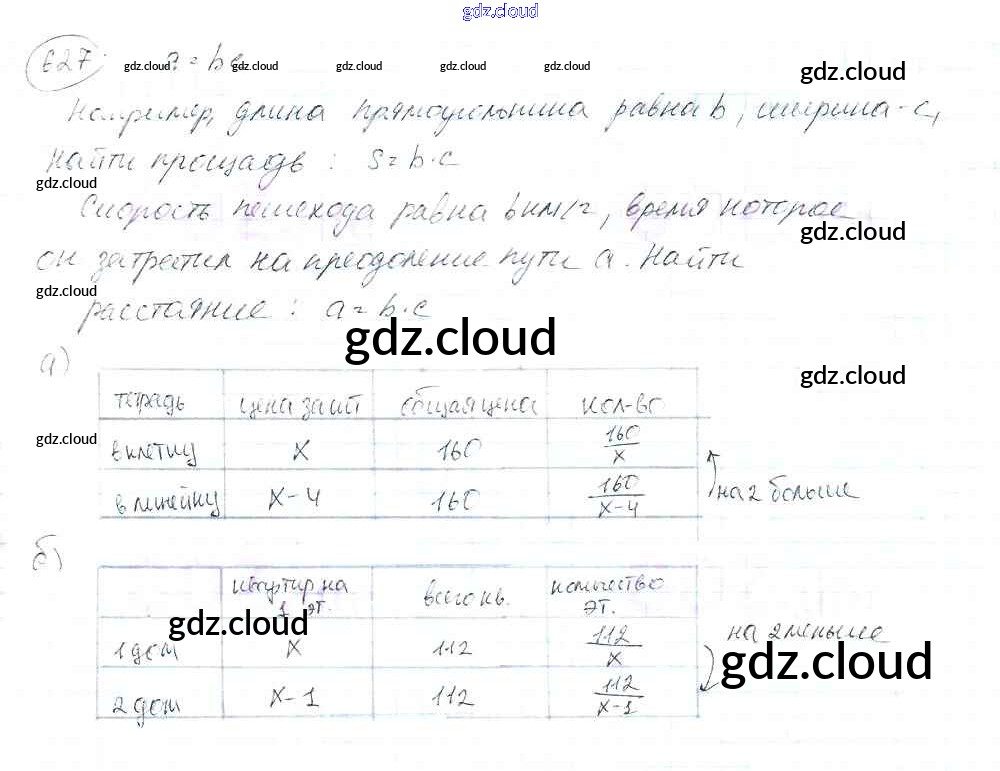 gdz.cloud
627. a = bc
gdz.cloud gdz.cloud gdz.cloud gdz.cloud gdz.cloud
gdz.cloud
Например, длина прямоугольника равна b, ширина - c,
Найти площадь : S = b·c
gdz.cloud
Скорость пешехода равна b км/г, время которое
gdz.cloud
он затратил на преодоление пути a. Найти
gdz.cloud
расстояние : a = b·c
gdz.cloud
а)
gdz.cloud
тетрадь цена за шт общая цена кол-во
gdz.cloud
в клетку x 160 160/x
в линейку x-4 160 160/x-4 на 2 больше
б)
квартир на 1 эт. всего кв. количество эт.
gdz.cloud
1 дом x 112 112/x на 2 меньше
gdz.cloud
2 дом x-1 112 112/x-1